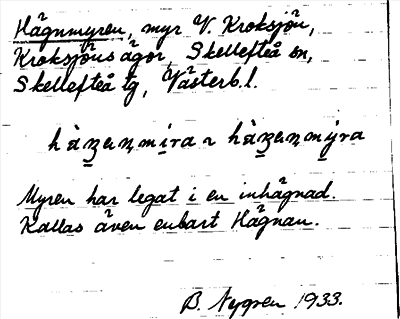 Hägnmyren, myr V. Kroksjön,
Kroksjöns ägor, Skellefteå sn,
Skellefteå tg, Västerb.l.
Myren har legat i en inhägnad.
Kallas även enbart Hägnan.
B. Nygren 1933.